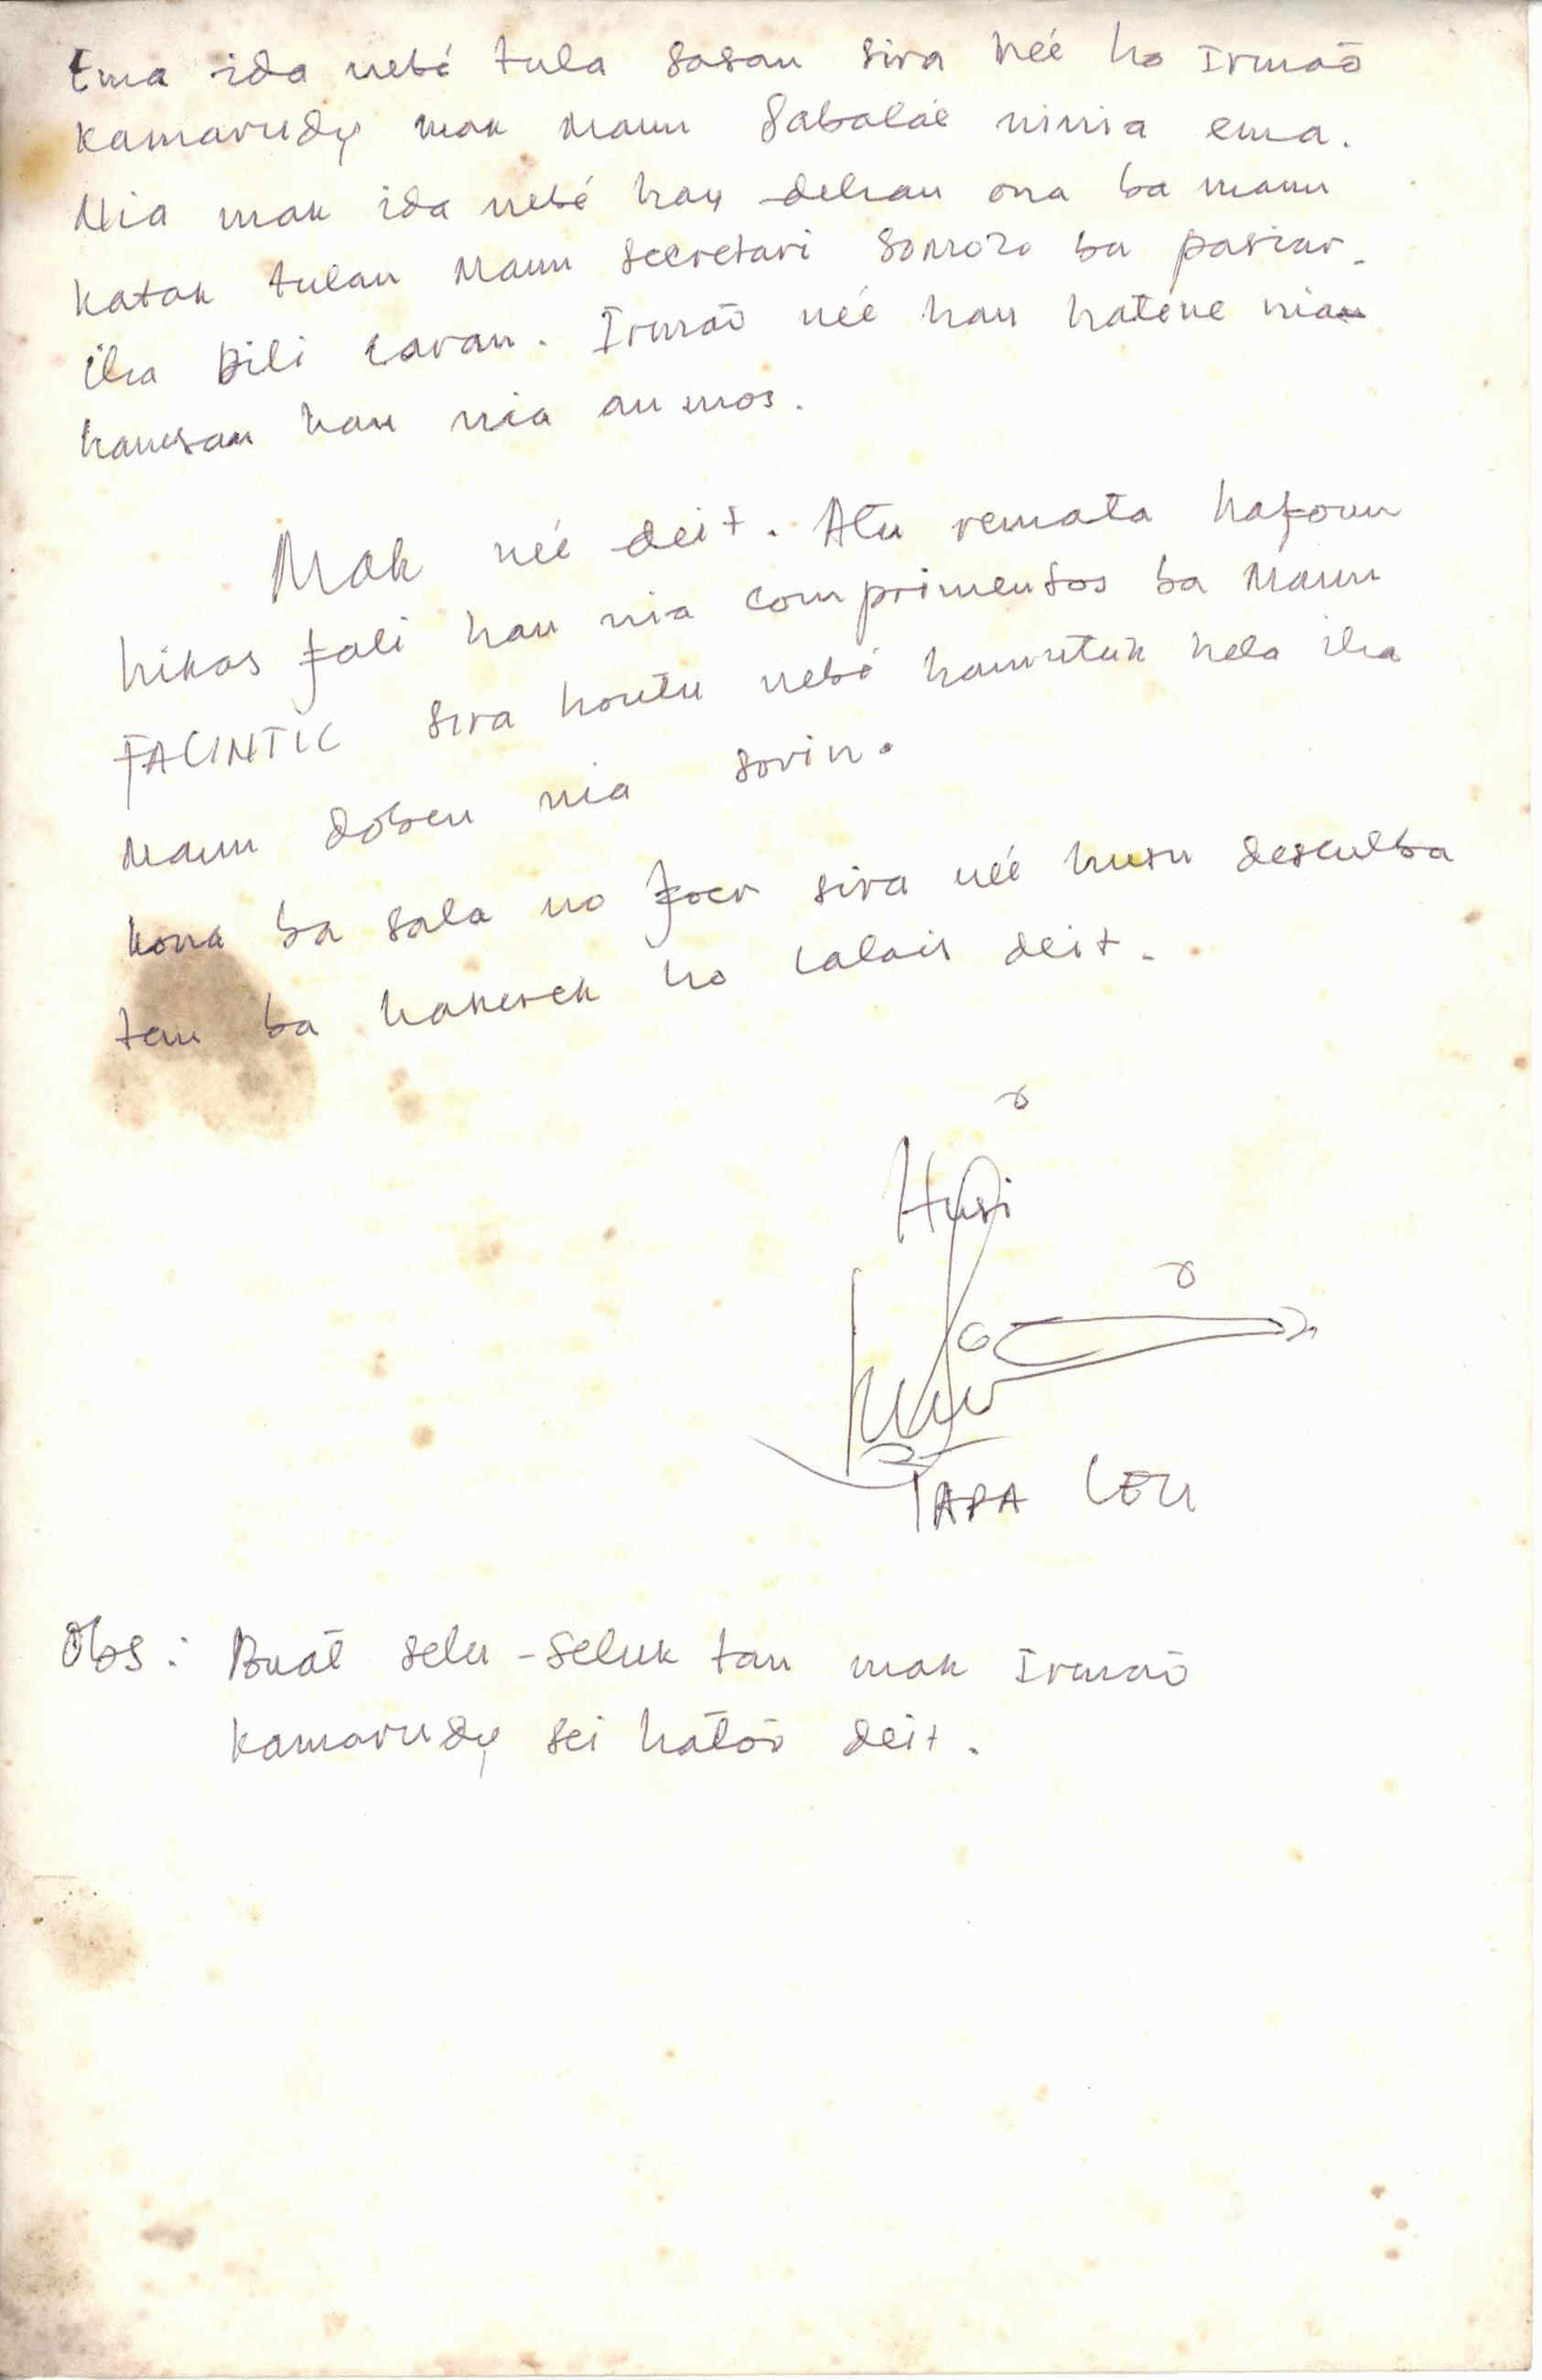 Ema ida nebé tula sasan sira neé ho Irmaõ
Kamarudy mak Maun Sabalaé ninia ema.
Nia mak ida nebé hau dehan ona ba maun
katak tulan Maun Secretari Somozo ba pasiar
iha Dili laran. Irmaõ neé hau hatene nia
hanesan hau nia an mos.
Mak neé deit. Atu remata hafoun
hikas fali hau nia comprimentos ba Maun
FALINTIL sira hontu nebé hamutuk hela iha
Maun doben nia sorin.
Kona ba sala no foer sira neé husu desculba
tan ba hakerek ho lalais deit.
Husi
PAPA LELI
Obs: Buat selu-seluk tan mak Irmaõ
Kamarudy sei hatõo deit.